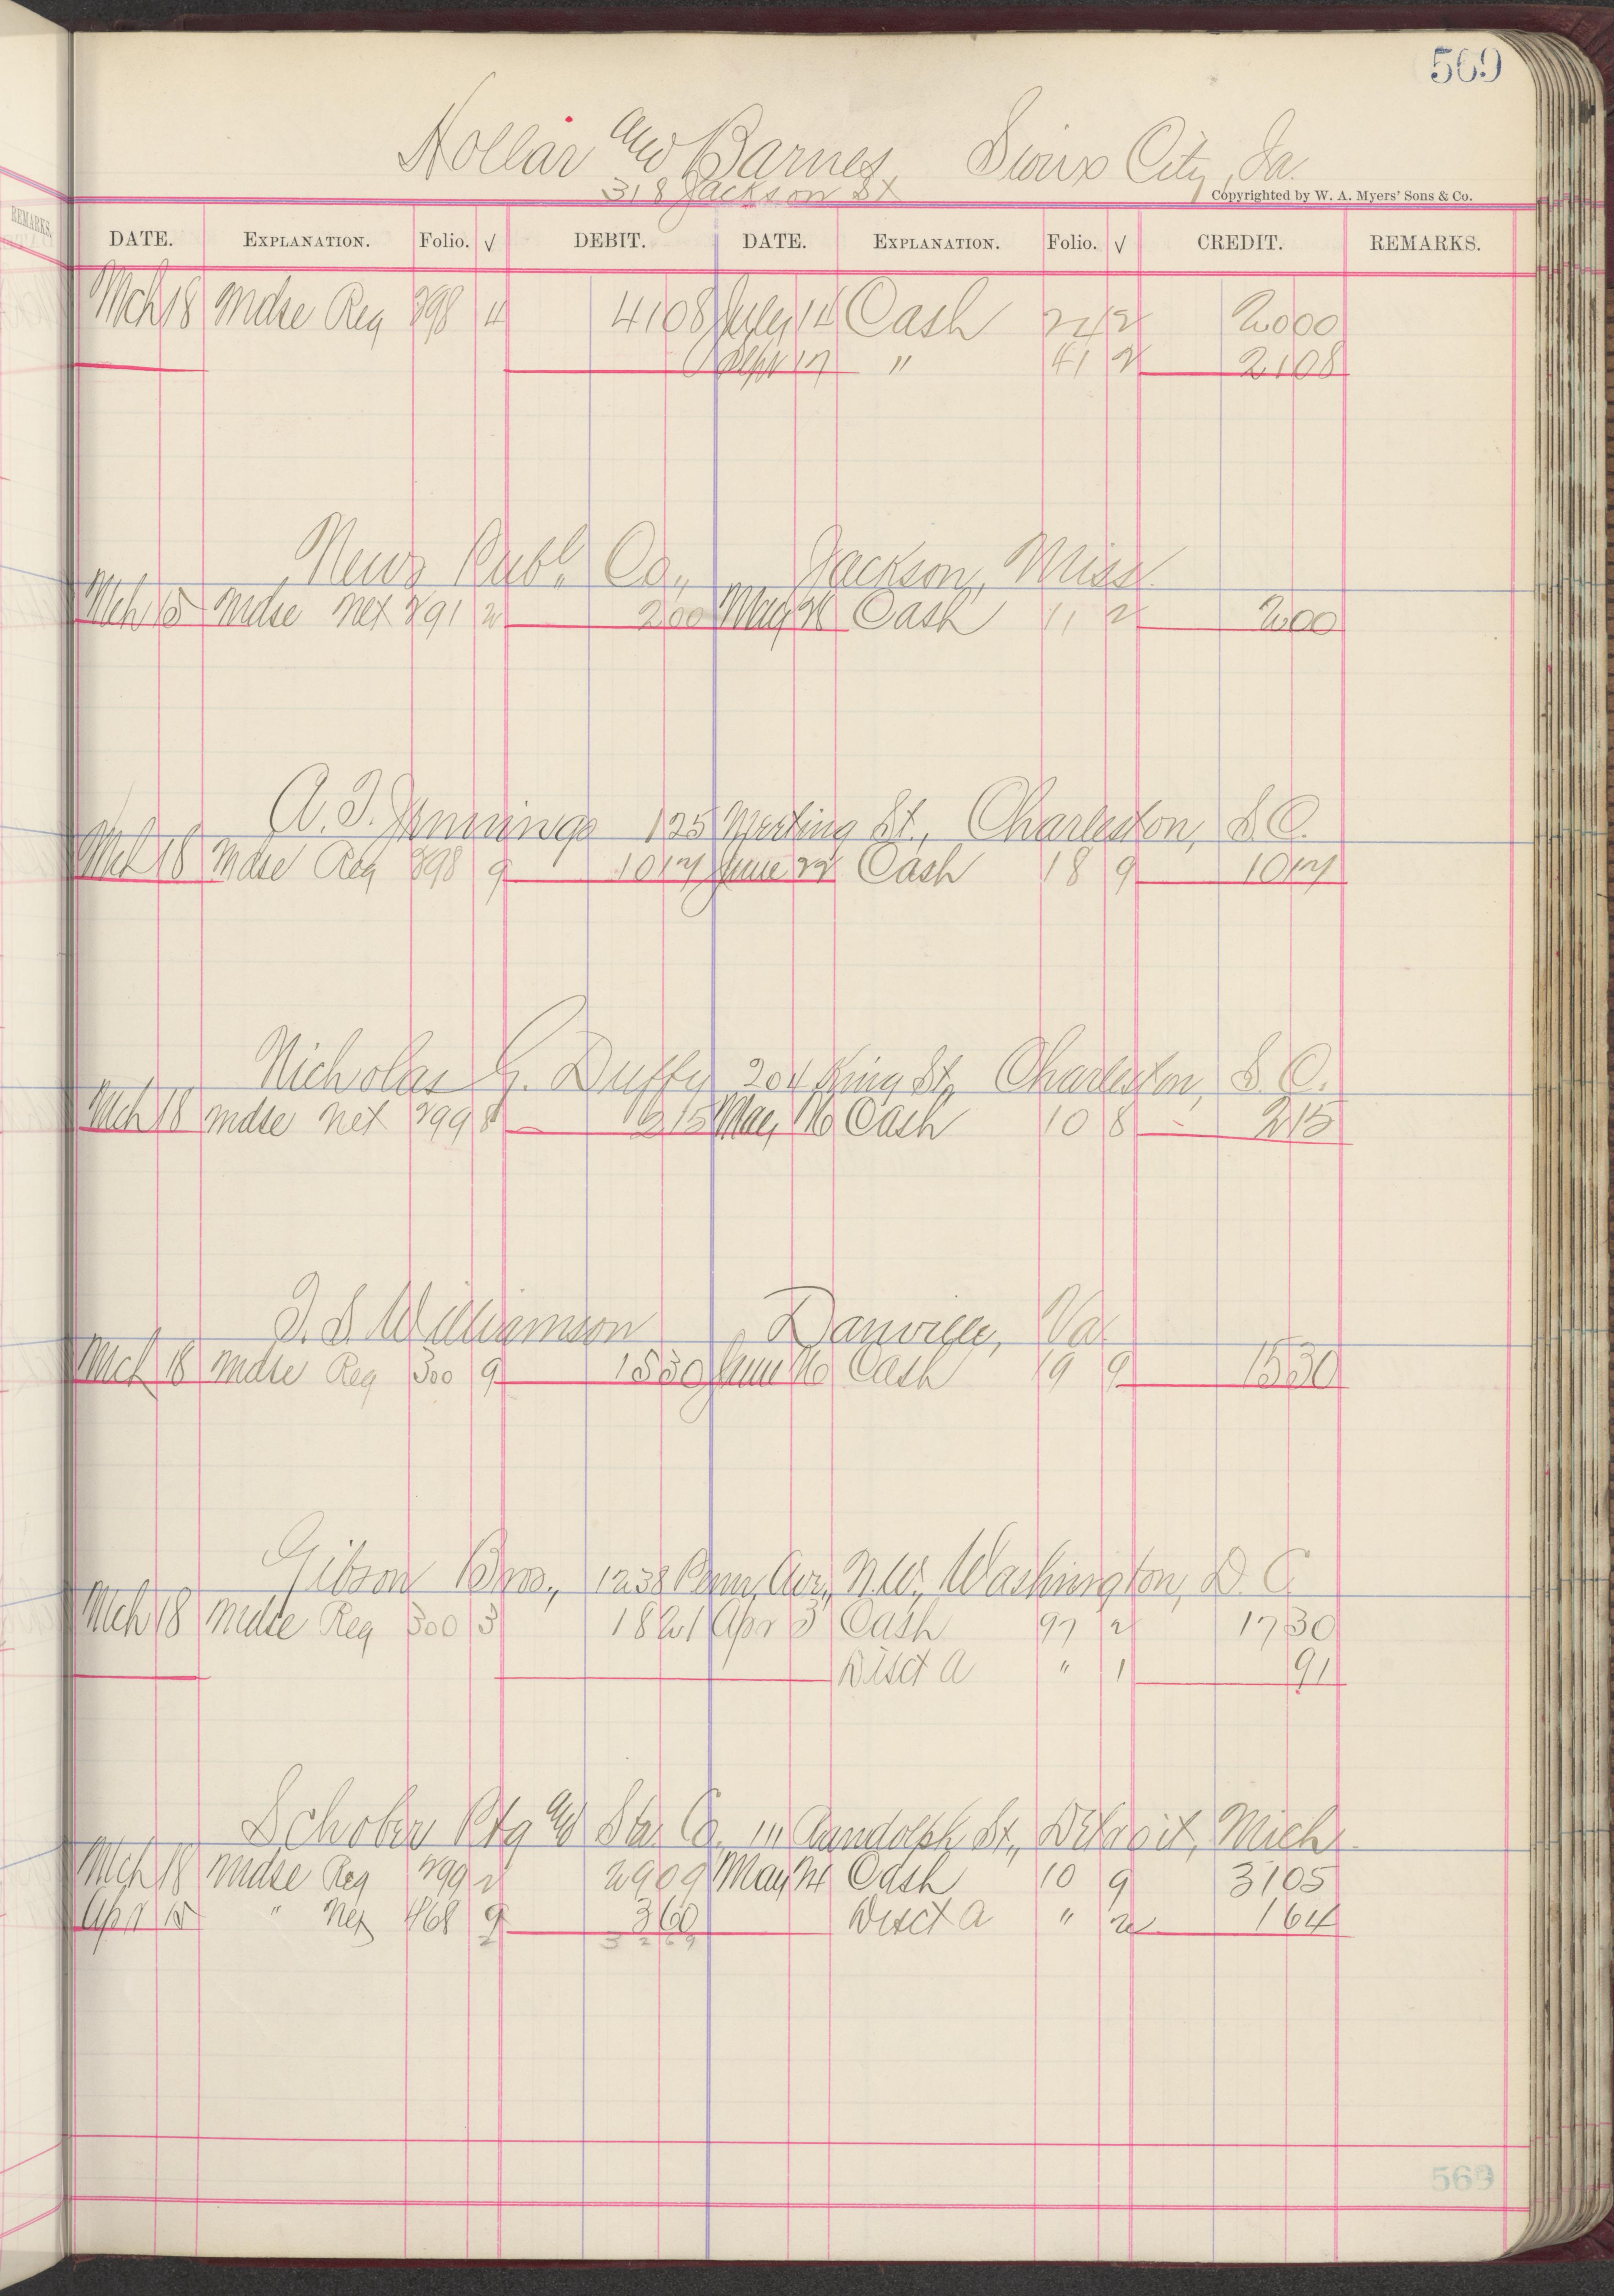 569
Hollar and Barnes, Sioux City, Ia.
318 Jackson St
Copyrighted by W. A. Myers' Sons & Co.
REMARKS.
DATE. EXPLANATION. Folio. √ DEBIT. DATE. EXPLANATION. Folio. √ CREDIT. REMARKS.
Mch 18 Mdse Reg 298 4 4108 July 14 Cash 24 2 2000
Sept 17 " 41 2 2108
News Publ. Co., Jackson, Miss.
Mch 15 Mdse Net 291 2 200 May 26 Cash 11 2 200
A. J. Jennings 125 Meeting St., Charleston, S.C.
Mch 18 Mdse Reg 298 9 1017 June 22 Cash 18 9 1017
Nicholas G. Duffy 204 King St., Charleston, S.C.
Mch 18 Mdse Net 299 8 215 May 16 Cash 10 8 215
J. S. Williamson Danville, Va.
Mch 18 Mdse Reg 300 9 1530 June 26 Cash 19 9 1530
Gibson Bros., 1238 Penn. Ave., N.W., Washington, D.C.
Mch 18 Mdse Reg 300 3 1821 Apr 3 Cash 97 2 1730
Disct A " 1 91
Schober Ptg and Sta. Co. 111 Randolph St., Detroit, Mich.
Mch 18 Mdse Reg 299 2 2909 May 24 Cash 10 9 3105
Apr 15 " Net 468 9 360 Disct A " 2 164
2 3269
569